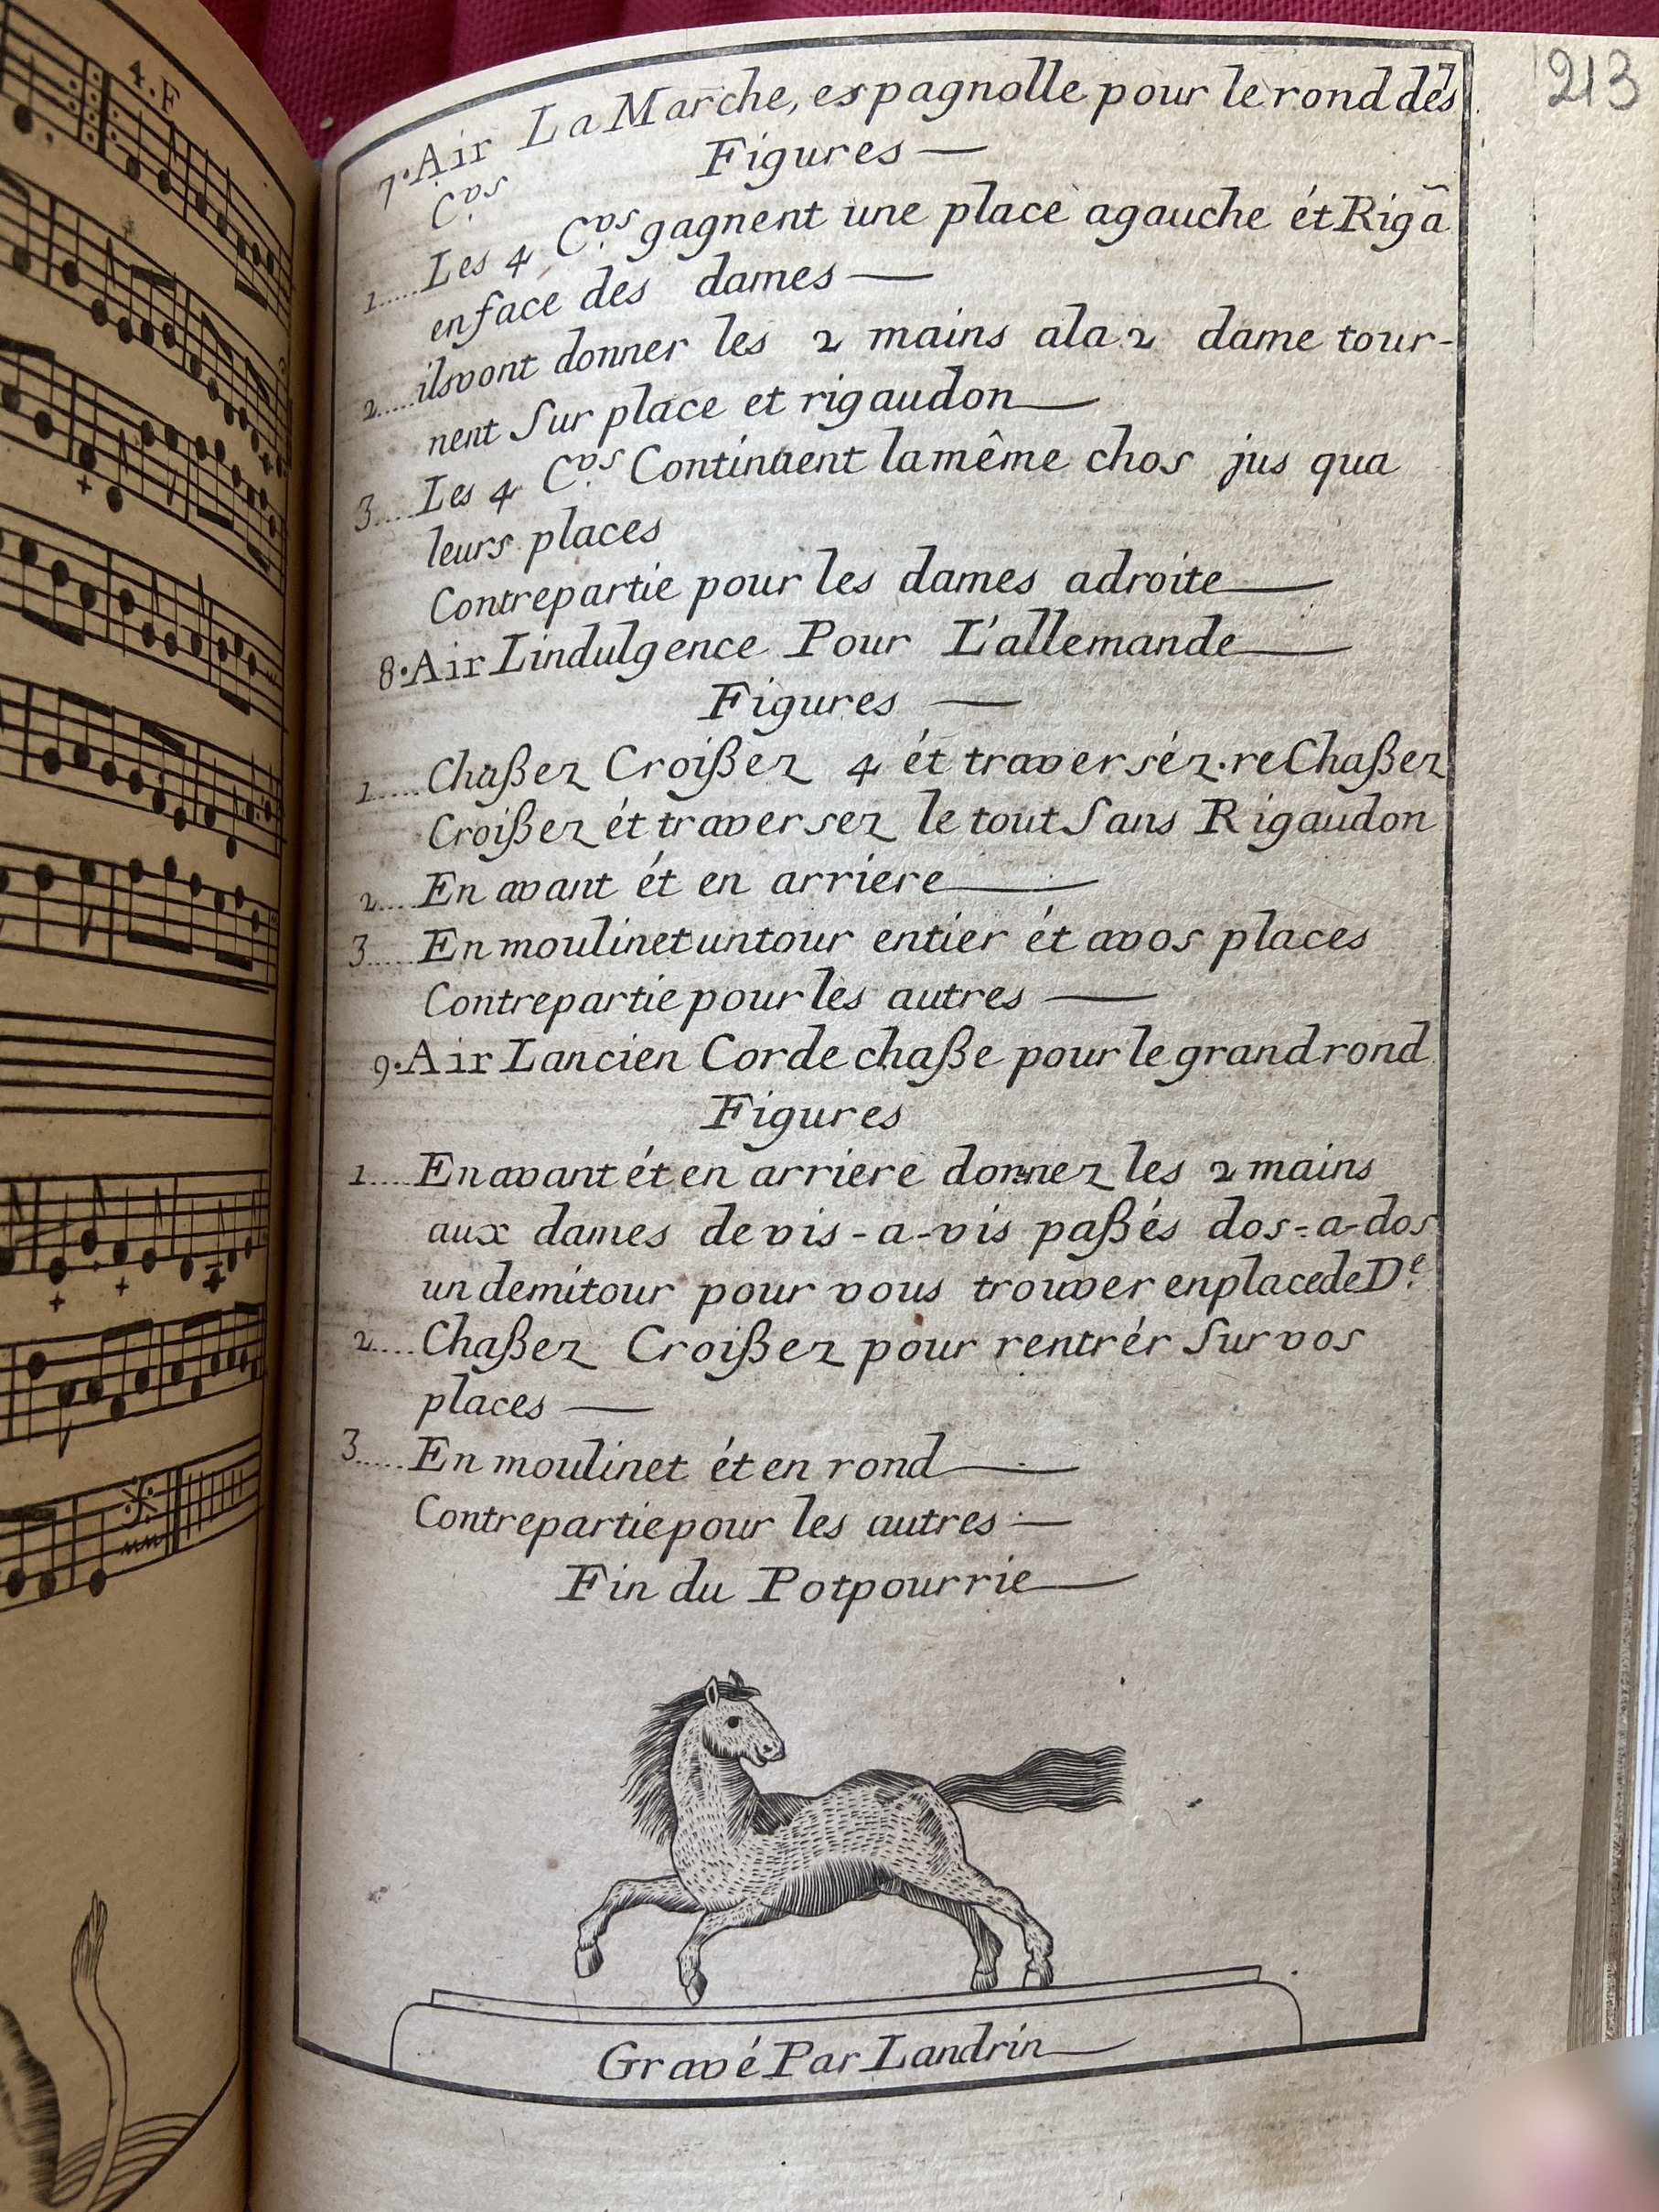 213
4. F
7. Air La Marche, espagnolle pour le rond dés
C.vs
Figures —
1.....Les 4 C.vs gagnent une place agauche ét Rigā
enface des dames —
2.....ilsvont donner les 2 mains ala 2 dame tour-
nent Sur place et rigaudon —
3.....Les 4 C.vs Continuent la même chos jus qua
leurs places
Contrepartie pour les dames adroite —
8. Air Lindulgence Pour L'allemande —
Figures —
1.....Chaßez Croißez 4 ét traverséz. re Chaßez
Croißez ét traversez le tout Sans Rigaudon
2....En avant ét en arriere —
3.....En moulinet untour entier ét avos places
Contrepartie pour les autres —
9. Air Lancien Cor de chaße pour le grand rond
Figures
1.....En avant ét en arriere donnez les 2 mains
aux dames de vis-a-vis paßés dos-a-dos
un demitour pour vous trouver enplacede D.e
2....Chaßez Croißez pour rentrér Sur vos
places —
3.....En moulinet ét en rond —
Contrepartie pour les autres —
Fin du Potpourrie —
Gravé Par Landrin —